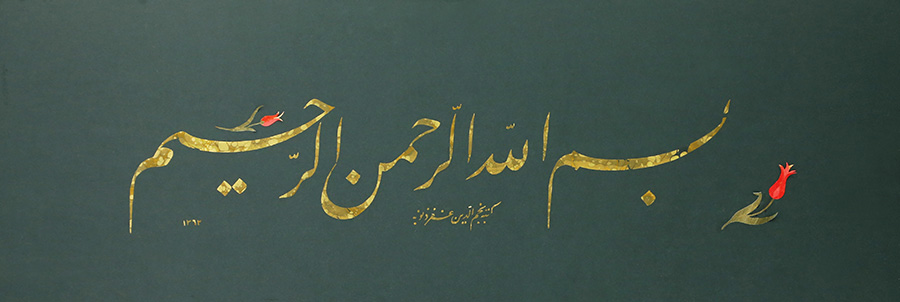 بسم الله الرحمن الرحيم
كتبه نجم الدين غفر ذنوبه
١٣٦٢